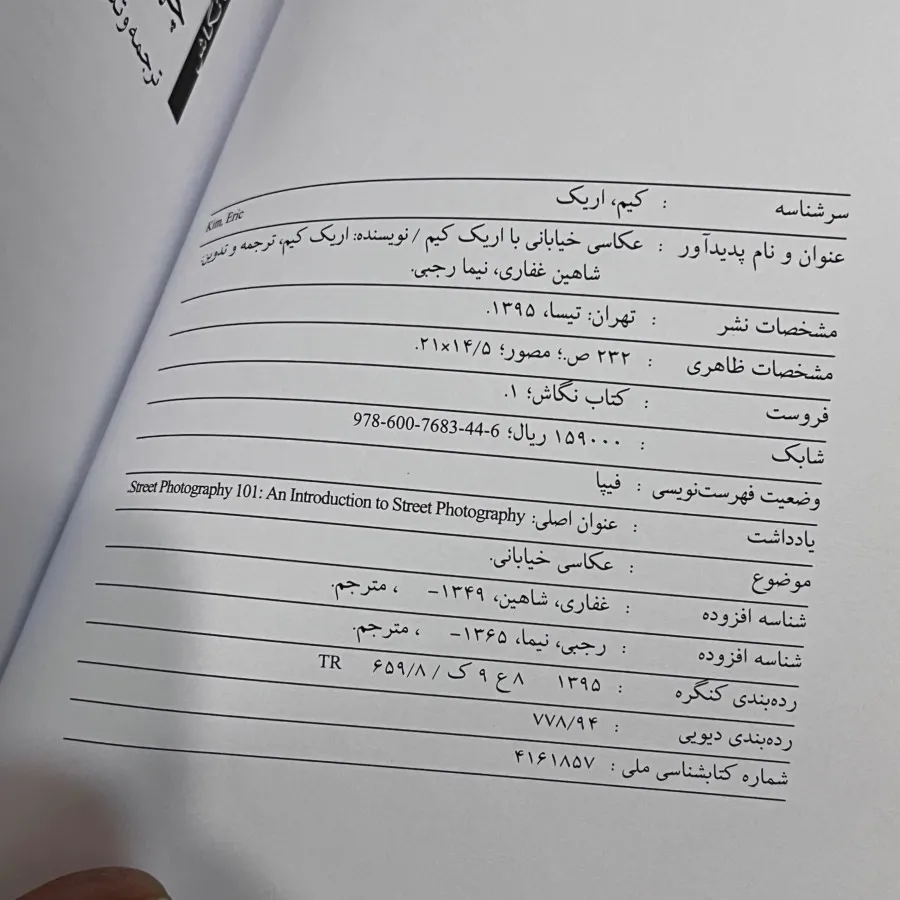 ترجمه و تد
سرشناسه : کیم، اریک
Kim, Eric
عنوان و نام پدیدآور : عکاسی خیابانی با اریک کیم / نویسنده: اریک کیم، ترجمه و تدوین:
شاهین غفاری، نیما رجبی.
مشخصات نشر : تهران: تیسا، ۱۳۹۵.
مشخصات ظاهری : ۲۳۲ ص.؛ مصور؛ ۲۱×۱۴/۵.
فروست : کتاب نگاش؛ ۱.
شابک : ۱۵۹۰۰۰ ریال؛ 978-600-7683-44-6
وضعیت فهرست‌نویسی : فیپا
یادداشت : عنوان اصلی: Street Photography 101: An Introduction to Street Photography.
موضوع : عکاسی خیابانی.
شناسه افزوده : غفاری، شاهین، ۱۳۴۹- ، مترجم.
شناسه افزوده : رجبی، نیما، ۱۳۶۵- ، مترجم.
رده‌بندی کنگره : ۱۳۹۵ ۸ع ۹ ک / ۶۵۹/۸ TR
رده‌بندی دیویی : ۷۷۸/۹۴
شماره کتابشناسی ملی : ۴۱۶۱۸۵۷